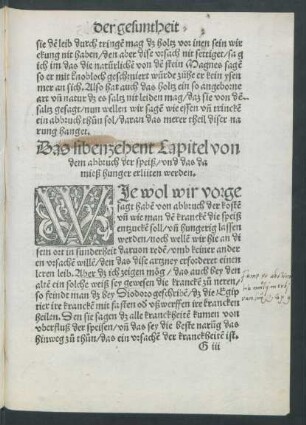 der gesuntheit.
sie dē leib durch tringē mag dz holtz vor inen sein wir
ckung nit haben/den aber dise vrsach nit settiget/sag
ich im das die natürlichē von dē stein Magnes sagē
so er mit knobloch geschmiert würde zühe er kein ysen
mer an sich. Also hat auch das holtz ein so angeborne
art vn̄ natur dz es saltz nit leiden mag/daz sie von dē
saltz gesagt/nun wellen wir sagē wie essen vn̄ trinckē
ein abbruch thůn sol/daran das merer theil diser na
rung hanget.
Das sibenzehent Capitel von
dem abbruch der speiß/vnd das da
mieß hunger erlitten werden.
WJe wol wir vorge
sagt habē von abbruch der kostē
vn̄ wie man dē kranckē die speiß
entzuckē soll/vn̄ hungerig lassen
werden/noch wellē wir hie an di
sem ort in sunderheit daruon redē/vmb keiner ander
en vrsachē willē/den das dise artzney erforderet einen
leren leib. Aber dz ich zeigen mög/das auch bey den
altē ein solche weiß sey gewesen die kranckē zů neren/
so findt man dz bey Diodoro geschribē/dz die Egip
tier ire kranckē mit fasten od̕ vßwerffen ire kranckē
heilen. Den sie sagen dz alle kranckheitē kumen von
vberfluß der speisen/vn̄ das sey die beste narūg das
hinweg zů thůn/das ein vrsachē der kranckheitē ist.
G iii